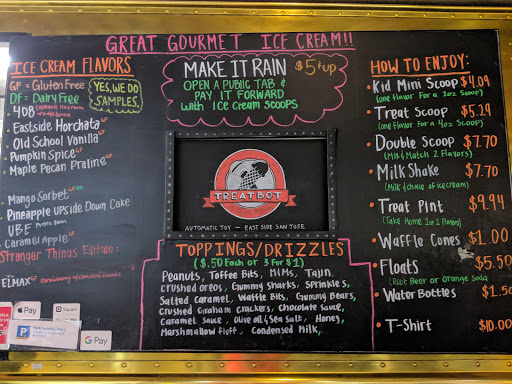 GREAT GOURMET ICE CREAM!!
ICE CREAM FLAVORS
GF = Gluten Free
DF = Dairy Free
YES, WE DO
SAMPLES.
408
Eastside Horchata GF
Old School Vanilla GF
Pumpkin Spice GF
Maple Pecan Praline GF
Mango Sorbet
Pineapple Upside Down Cake
UBE
Caramel Apple
Stranger Things Edition:
ELMAX
MAKE IT RAIN $5 & up
OPEN A PUBLIC TAB &
PAY IT FORWARD
with ICE cream SCOOPS
TREATBOT
AUTOMATIC JOY — EAST SIDE SAN JOSE
TOPPINGS/DRIZZLES
($.50 Each or 3 For $1)
Peanuts, Toffee Bits, M&Ms, Tajin,
crushed oreos, Gummy Sharks, Sprinkles,
Salted Caramel, Waffle Bits, Gummy Bears,
Crushed Graham Crackers, Chocolate Sauce,
Caramel Sauce, Olive oil (Sea Salt, Honey,
Marshmallow Fluff, Condensed Milk,
HOW TO ENJOY:
• Kid Mini Scoop $4.09
(one flavor For a 2oz Scoop)
• Treat Scoop $5.29
(one Flavor For a 4oz Scoop)
• Double Scoop $7.70
(Mix & Match 2 Flavors)
• Milk Shake $7.70
(Milk & choice of icecream)
• Treat Pint $9.94
(Take Home 1 or 2 Flavors)
• Waffle Cones $1.00
• Floats $5.50
(Root Beer or Orange Soda)
• Water Bottles $1.50
• T-Shirt $10.00
Apple Pay
Square
G Pay
P